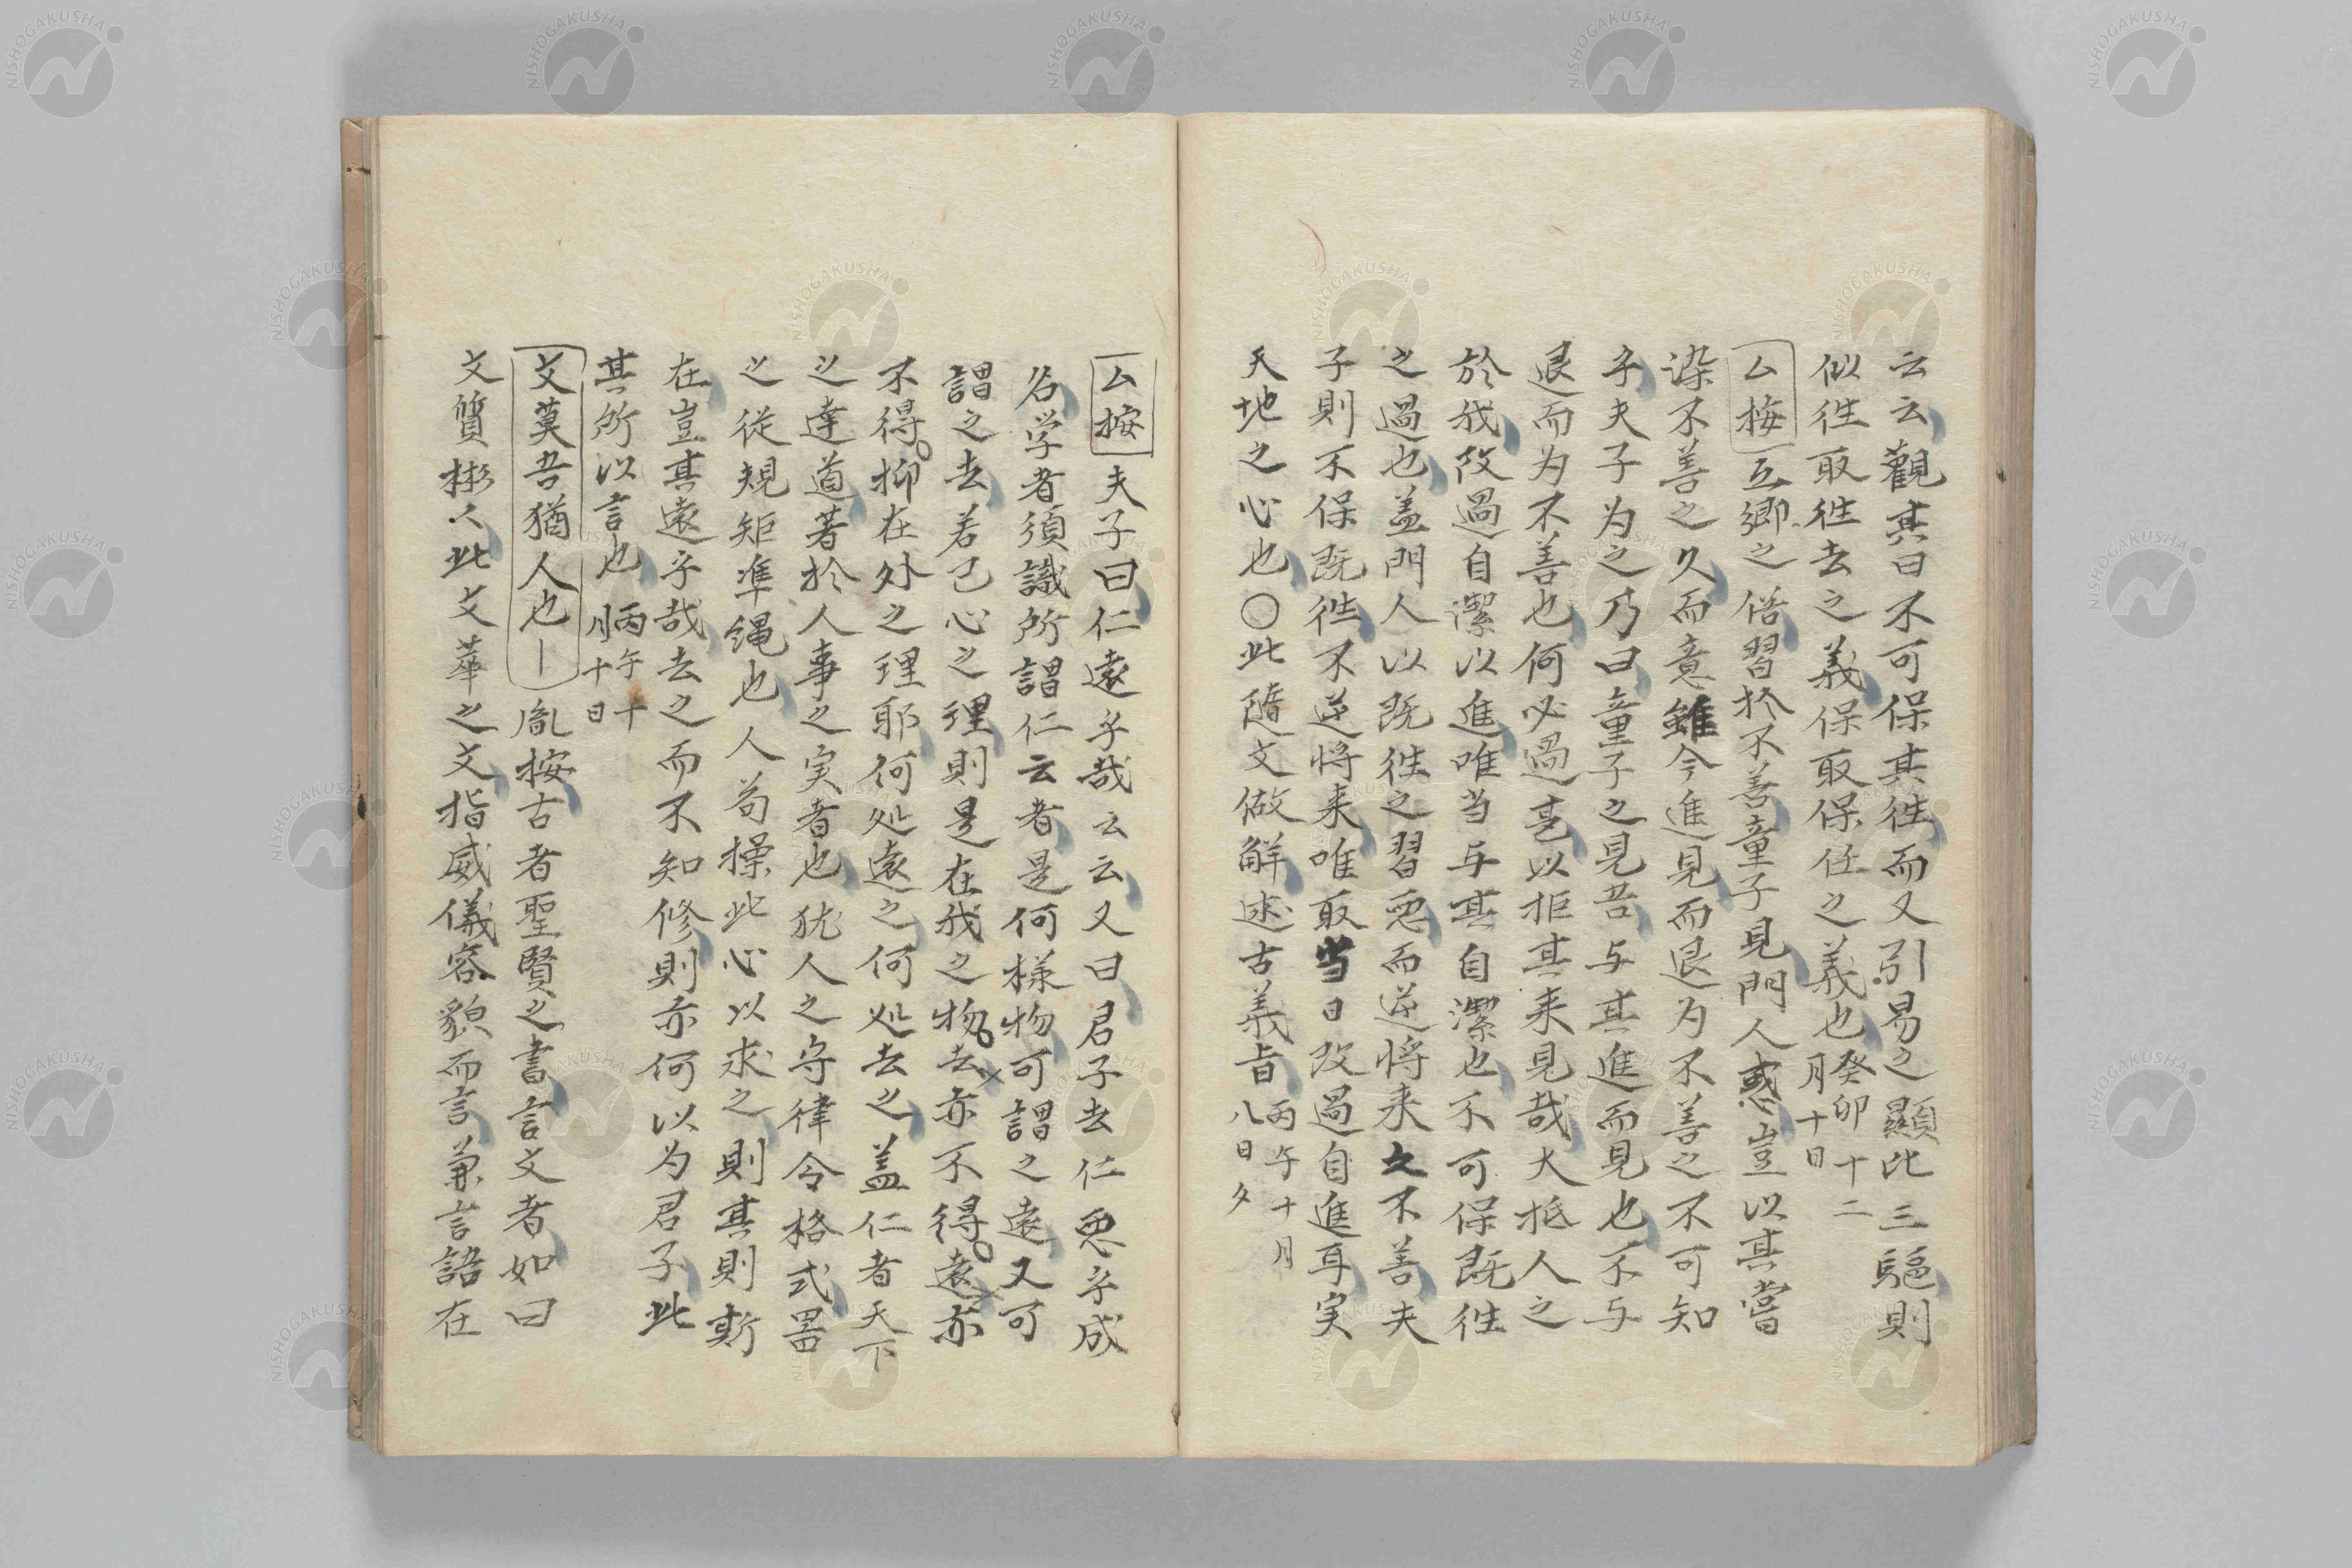 云云觀其曰不可保其徃而又引易之顯比三驅則
似徃取徃去之義保取保任之義也癸卯十二
月十日
厶按互鄉之俗習於不善童子見門人惑豈以其嘗
染不善之久而意雖今進見而退为不善之不可知
乎夫子为之乃曰童子之見吾与其進而見也不与
退而为不善也何必過甚以拒其来見哉大抵人之
於我改過自潔以進唯当与其自潔也不可保既徃
之過也盖門人以既徃之習悪而逆将来之不善夫
子則不保既徃不逆将来唯取当日改過自進耳実
天地之心也〇此隨文做解述古義旨丙午十月
八日夕
厶按夫子曰仁遠乎哉云云又曰君子去仁悪乎成
名学者須識所謂仁云者是何様物可謂之遠又可
謂之去若己心之理則是在我之物去亦不得遠亦
不得抑在外之理耶何処遠之何処去之盖仁者天下
之達道著於人事之実者也犹人之守律令格式噐
之従規矩準繩也人苟操此心以求之則其則斯
在豈其遠乎哉去之而不知修則亦何以为君子此
其所以言也丙午十
月十日
文莫吾猶人也｜胤按古者聖賢之書言文者如曰
文質彬〻此文華之文指威儀容貌而言兼言語在
NISHOGAKUSHA